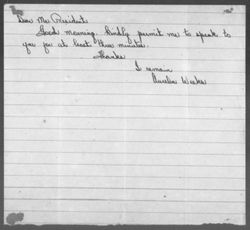 Dear Mr. President:
Good morning. Kindly permit me to speak to
you for at least three minutes.
Thanks
I remain
Aurelia Weeks